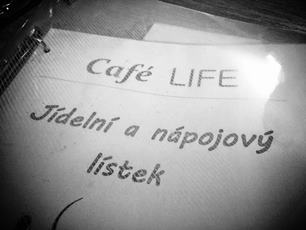 Café LIFE
Jídelní a nápojový
lístek